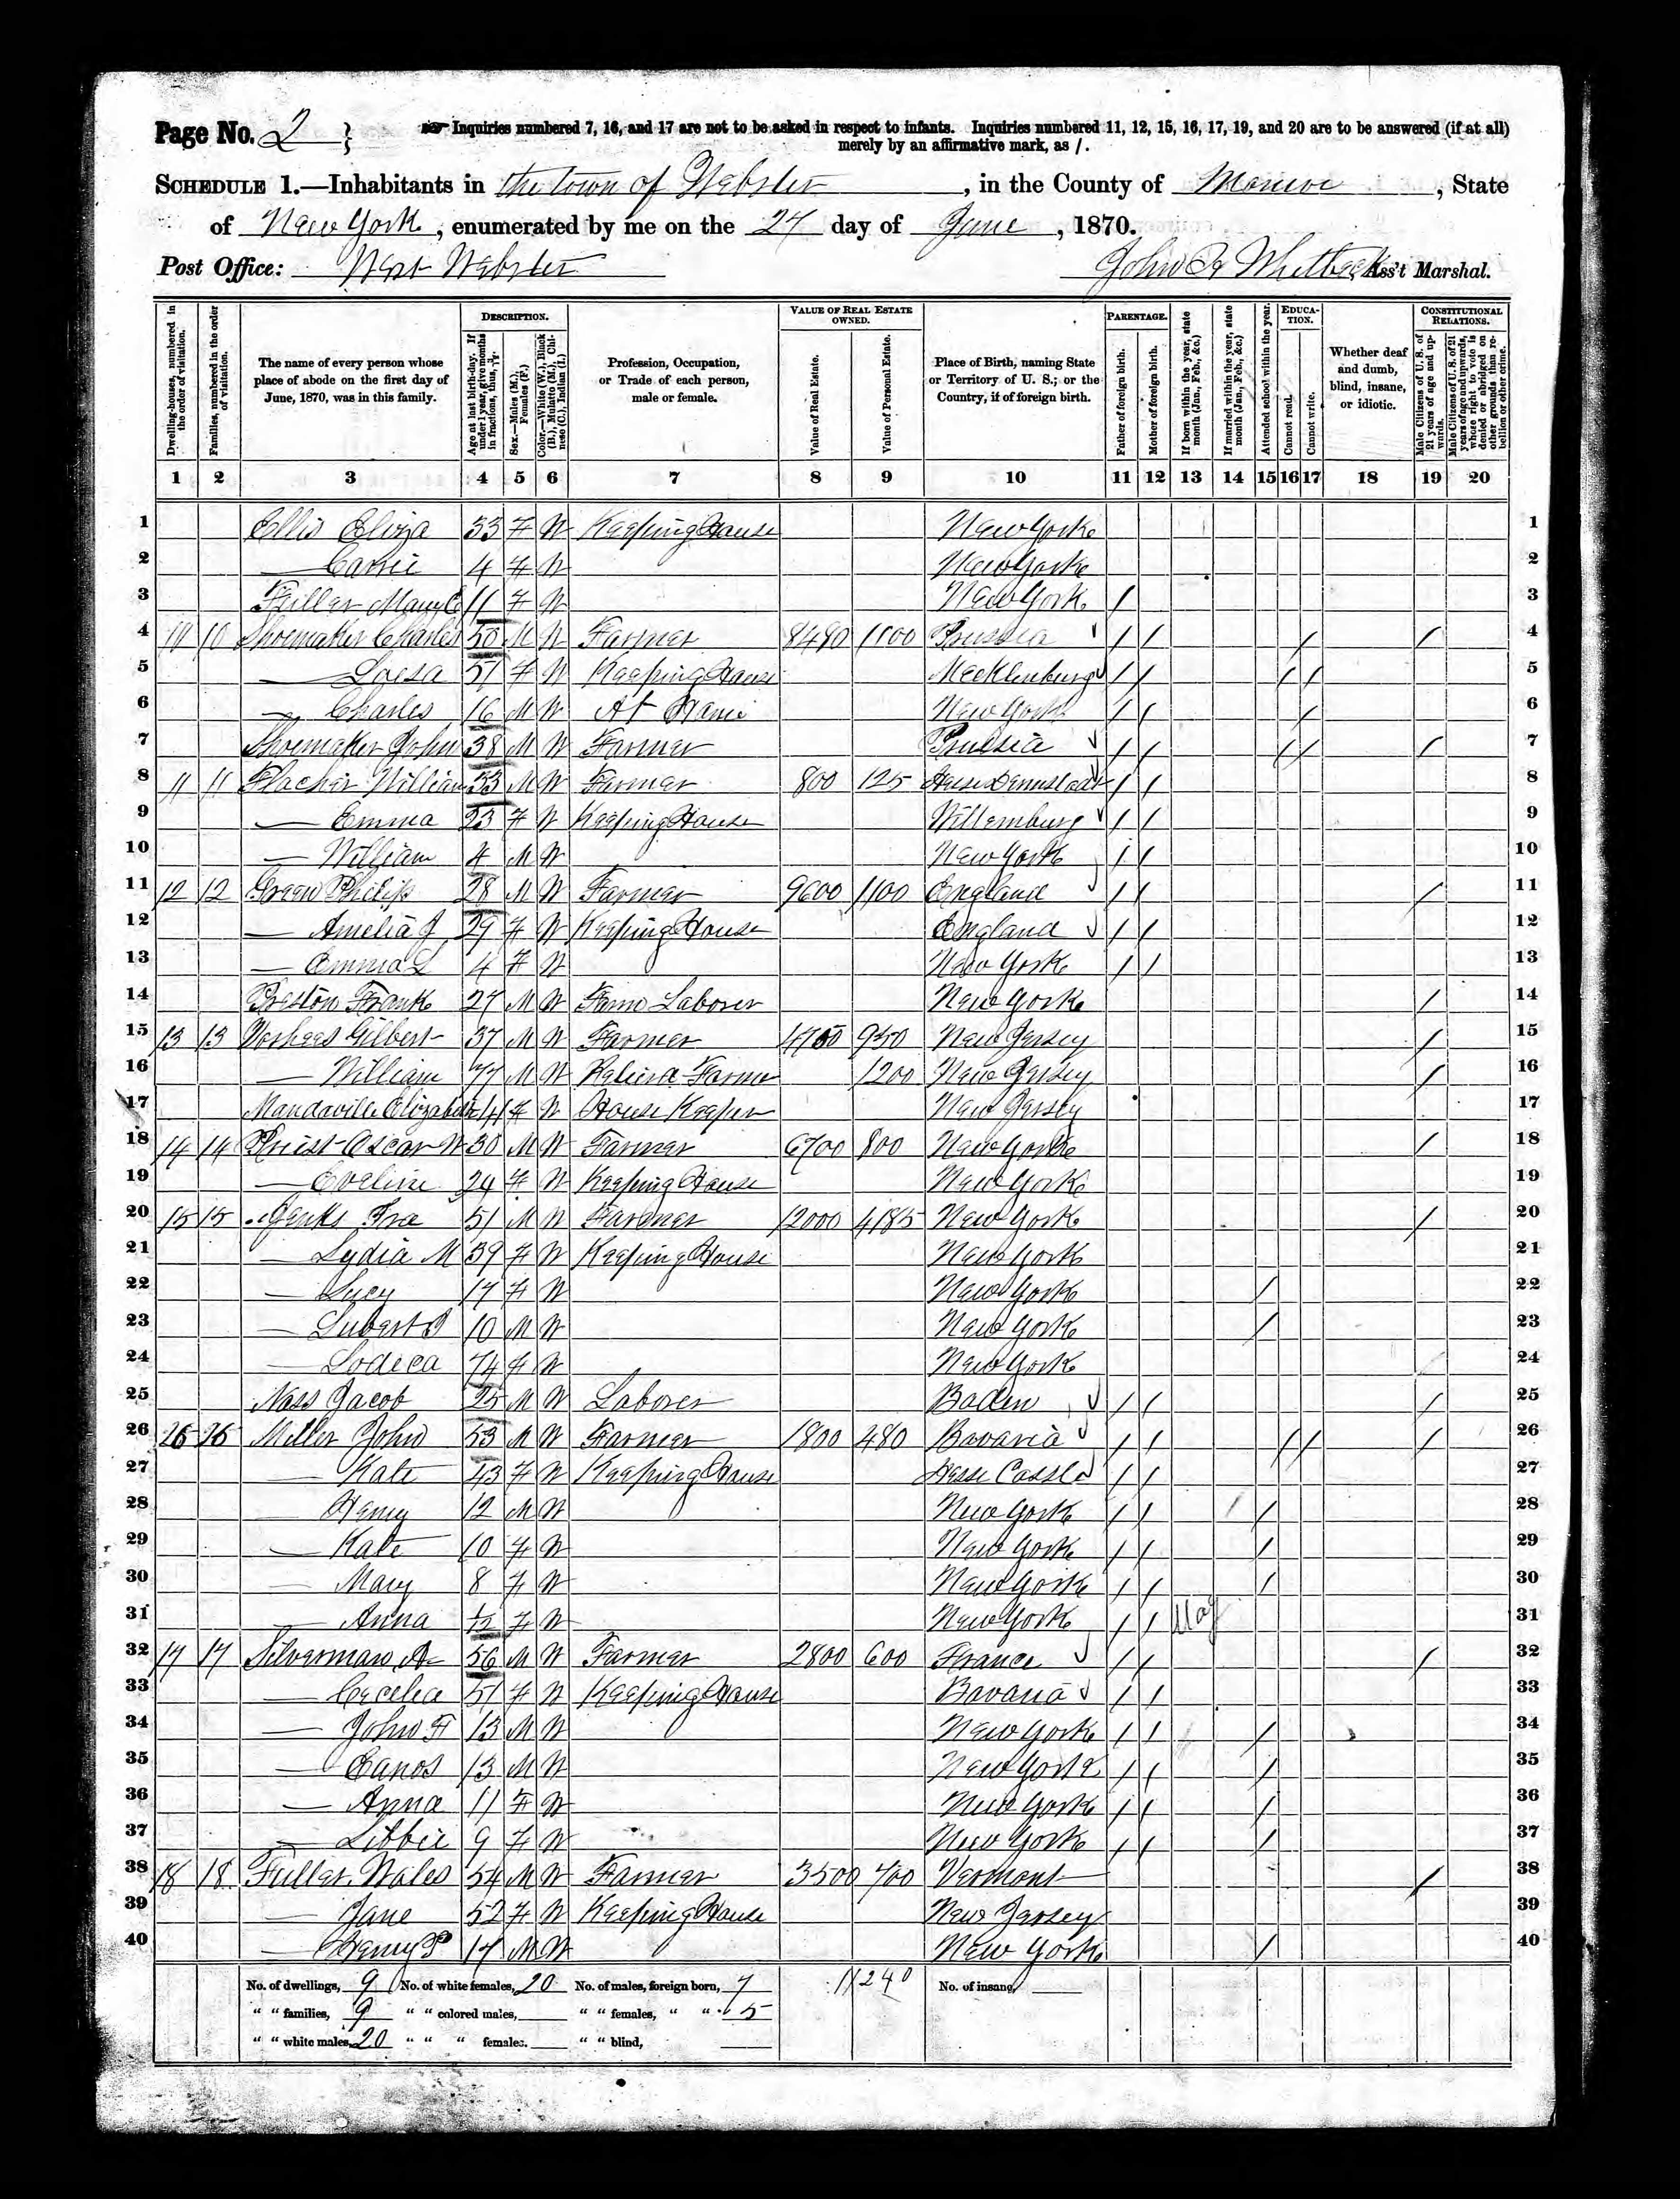 Page No. 2
Inquiries numbered 7, 16, and 17 are not to be asked in respect to infants. Inquiries numbered 11, 12, 15, 16, 17, 19, and 20 are to be answered (if at all)
merely by an affirmative mark, as /.
SCHEDULE 1.—Inhabitants in the town of Webster, in the County of Monroe, State
of New York, enumerated by me on the 27 day of June, 1870.
Post Office: West Webster
John Whitbeck, Ass't Marshal.
Dwelling-houses, numbered in the order of visitation.
Families, numbered in the order of visitation.
The name of every person whose place of abode on the first day of June, 1870, was in this family.
DESCRIPTION.
Age at last birth-day. If under 1 year, give months in fractions, thus, 3/12.
Sex.—Males (M.), Females (F.)
Color.—White (W.), Black (B.), Mulatto (M.), Chinese (C.), Indian (I.)
Profession, Occupation, or Trade of each person, male or female.
VALUE OF REAL ESTATE OWNED.
Value of Real Estate.
Value of Personal Estate.
Place of Birth, naming State or Territory of U. S.; or the Country, if of foreign birth.
PARENTAGE.
Father of foreign birth.
Mother of foreign birth.
If born within the year, state month (Jan., Feb., &c.)
If married within the year, state month (Jan., Feb., &c.)
Attended school within the year.
EDUCATION.
Cannot read.
Cannot write.
Whether deaf and dumb, blind, insane, or idiotic.
CONSTITUTIONAL RELATIONS.
Male Citizens of U. S. of 21 years of age and upwards.
Male Citizens of U. S. of 21 years of age and upwards, whose right to vote is denied or abridged on other grounds than rebellion or other crime.
1 2 3 4 5 6 7 8 9 10 11 12 13 14 15 16 17 18 19 20
1 Ellis Eliza 33 F W Keeping House New York 1
2 — Carrie 4 F W New York 2
3 Fuller Mary E 11 F W New York / 3
4 10 10 Shoemaker Charles 50 M W Farmer 8480 1100 Prussia / / / / 4
5 — Loesa 51 F W Keeping House Mecklenburg / / / / 5
6 — Charles 16 M W At Home New York / / / 6
7 Shoemaker John 38 M W Farmer Prussia / / / / / 7
8 11 11 William 33 M W Farmer 800 125 Hesse Darmstadt / / 8
9 — Emma 23 F W Keeping House Wittemburg / / 9
10 — William 4 M W New York / / 10
11 12 12 Green Philip 28 M W Farmer 9600 1100 England / / / 11
12 — Amelia J 29 F W Keeping House England / / 12
13 — Emma L 4 F W New York / / 13
14 Preston Frank 27 M W Farm Laborer New York / 14
15 13 13 Vorhees Gilbert 37 M W Farmer 4700 950 New Jersey / 15
16 — William 77 M W Retired Farmer 1200 New Jersey / 16
17 Mandaville Elizabeth 41 F W House Keeper New Jersey 17
18 14 14 Priest Oscar W 30 M W Farmer 6700 800 New York / 18
19 — Eveline 24 F W Keeping House New York 19
20 15 15 Jenks Ira 51 M W Farmer 12000 4185 New York / 20
21 — Lydia M 39 F W Keeping House New York 21
22 — Lucy 17 F W New York / 22
23 — 10 M W New York / 23
24 — Lodica 74 F W New York 24
25 Nass Jacob 25 M W Laborer Baden / / / 25
26 26 26 Miller John 53 M W Farmer 1800 480 Bavaria / / / / / 26
27 — Kate 43 F W Keeping House Hesse Cassel / / 27
28 — Henry 12 M W New York / / / 28
29 — Kate 10 F W New York / / / 29
30 — Mary 8 F W New York / / / 30
31 — Anna 1/12 F W New York / / May 31
32 17 17 Silverman A 56 M W Farmer 2800 600 France / / / 32
33 — Cecelia 51 F W Keeping House Bavaria / / 33
34 — John F 13 M W New York / / / 34
35 — 13 M W New York / / / 35
36 — Anna 11 F W New York / / / 36
37 — Libbie 9 F W New York / / / 37
38 18 18 Fuller Wales 54 M W Farmer 3500 700 Vermont / 38
39 — Jane 52 F W Keeping House New Jersey 39
40 — Henry P 17 M W New York / 40
No. of dwellings, 9 No. of white females, 20 No. of males, foreign born, 7 11240 No. of insane,
" " families, 9 " " colored males, " " females, " " 5
" " white males, 20 " " " females. " " blind,